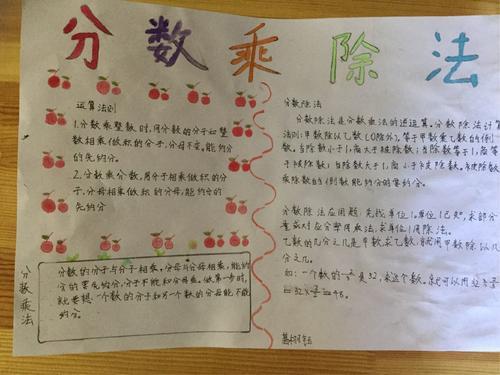 分数乘除法
运算法则
1.分数乘整数时,用分数的分子和整
数相乘做积的分子,分母不变,能约
分的先约分。
2.分数乘分数,用分子相乘做积的分
子,分母相乘做积的分母,能约分的
先约分
分数乘法
分数的分子与分子相乘,分母与分母相乘,能约
分的要先约分,分子不能和分母乘。做第一步时,
就要想一个数的分子和另一个数的分母能不能
约分。
分数除法
分数除法是分数乘法的逆运算,分数除法计算
法则:甲数除以乙数(0除外),等于甲数乘乙数的倒
数。当除数小于1,商大于被除数;当除数等于1,商等
于被除数;当除数大于1,商小于被除数。被除数
乘除数的倒数能约分的要约分。
分数除法应用题:先找单位1。单位1已知,求部分
量或对应分率用乘法,求单位1用除法。
乙数的几分之几是甲数求乙数,就用甲数除以几
分之几。
如:一个数的 是32,求这个数。就可以用32÷
=32× =48。